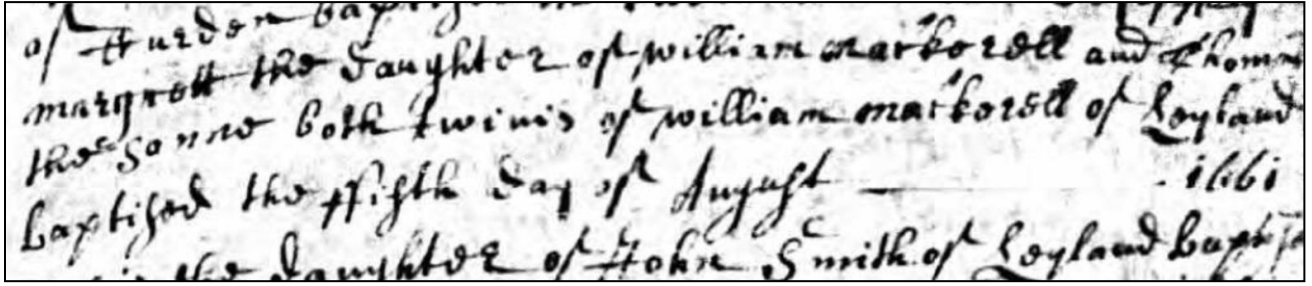 of Hurden bap
margrett the daughter of william mackorell and Thomas
the sonne both twinis of william mackorell of Leyland
baptised the ffifth day of August 1661
the daughter of John Smith of Leyland bapti